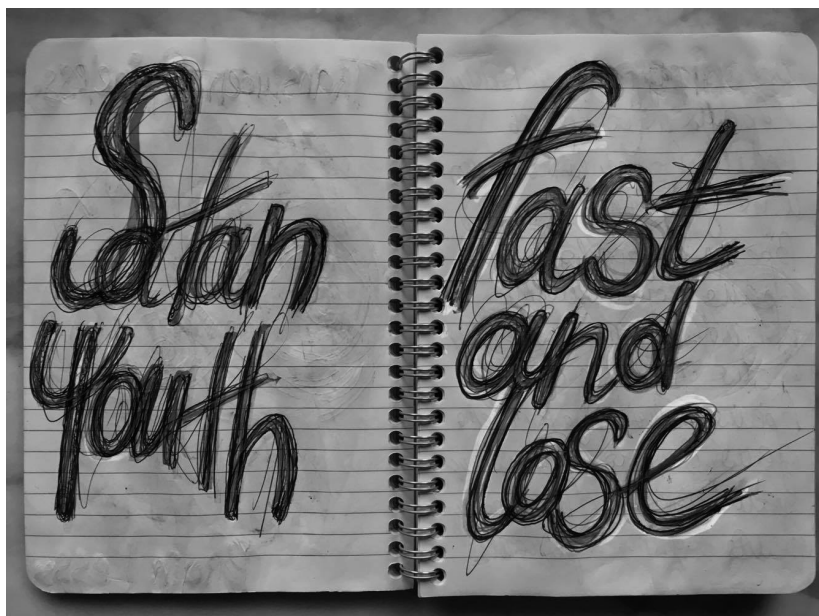 Satan
Youth
fast
and
lose